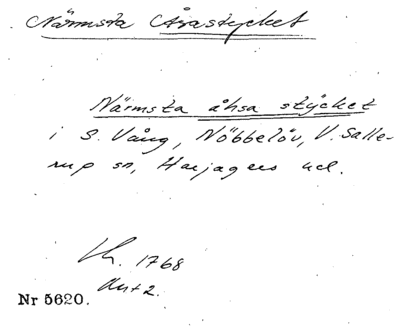 Närmsta Åsastycket
Närmsta åhsa stycket
i S. Vång, Nöbbelöv, V. Salle-
rup sn, Harjagers hd.
Lh. 1768
Akt 2.
Nr 5620.